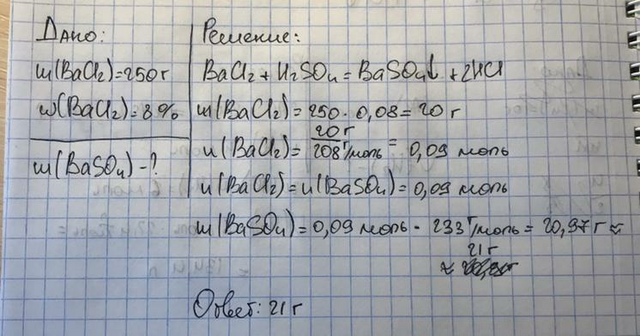 Дано:
m(BaCl₂)=250г
w(BaCl₂)=8%
m(BaSO₄)-?
Решение:
BaCl₂ + H₂SO₄ = BaSO₄↓ + 2HCl
m(BaCl₂) = 250 · 0,08 = 20 г
n(BaCl₂) = 20г / 208 г/моль = 0,09 моль
n(BaCl₂) = n(BaSO₄) = 0,09 моль
m(BaSO₄) = 0,09 моль · 233 г/моль = 20,97 г ≈
≈ 21г
Ответ: 21 г